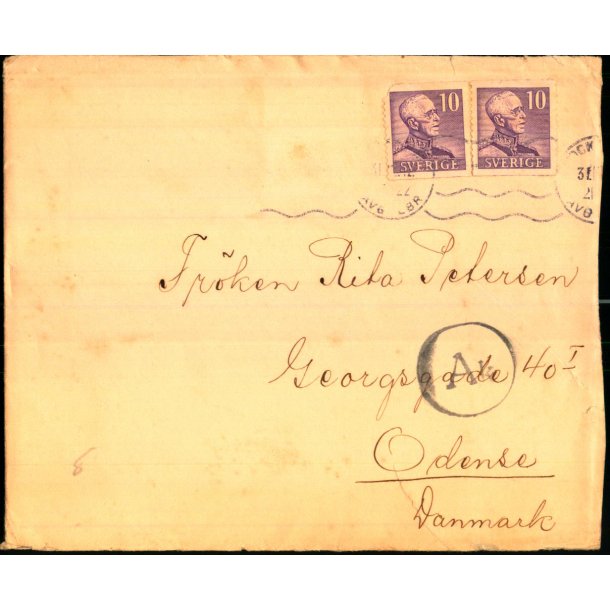 10 10
SVERIGE SVERIGE
Fröken Rita Petersen
Georgsgade 40 I
Odense
Danmark